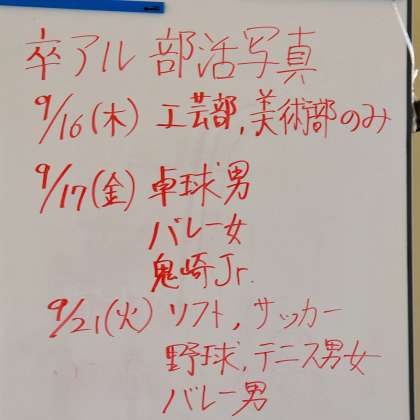 卒アル 部活写真
9/16(木) 工芸部,美術部のみ
9/17(金) 卓球男
バレー女
鬼崎Jr.
9/21(火) ソフト,サッカー
野球,テニス男女
バレー男